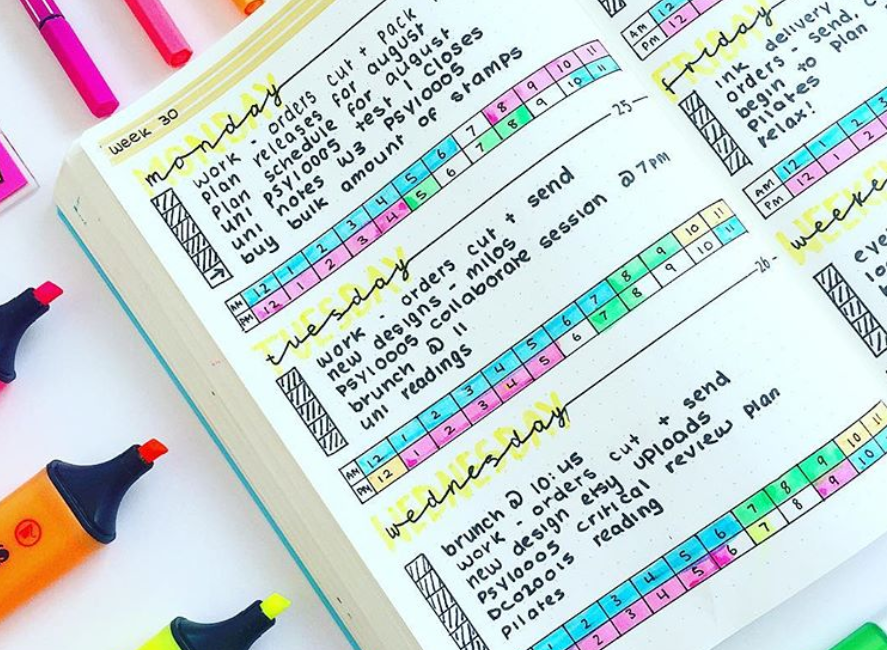 week 30
MONDAY
monday
work - orders cut + pack
plan releases for august
plan schedule for august
uni PSY10005 test 1 closes
uni notes W3 PSY10005
buy bulk amount of stamps
AM 12 1 2 3 4 5 6 7 8 9 10 11
PM 12 1 2 3 4 5 6 7 8 9 10 11
25
TUESDAY
tuesday
work - orders cut + send
new designs - milos
PSY10005 collaborate session @ 7pm
brunch @ 11
uni readings
AM 12 1 2 3 4 5 6 7 8 9 10 11
PM 12 1 2 3 4 5 6 7 8 9 10 11
26
WEDNESDAY
wednesday
brunch @ 10:45
work - orders cut + send
new design etsy uploads
PSY10005 critical review plan
DCO20015 reading
pilates
1 2 3 4 5 6 7 8 9 10 11
2 3 4 5 6 7 8 9 10
AM 12
PM 12
FRIDAY
friday
ink delivery
orders - send,
begin to plan
pilates
relax!
AM 12 1 2 3
PM 12 1 2
WEEKE
weeke
eve